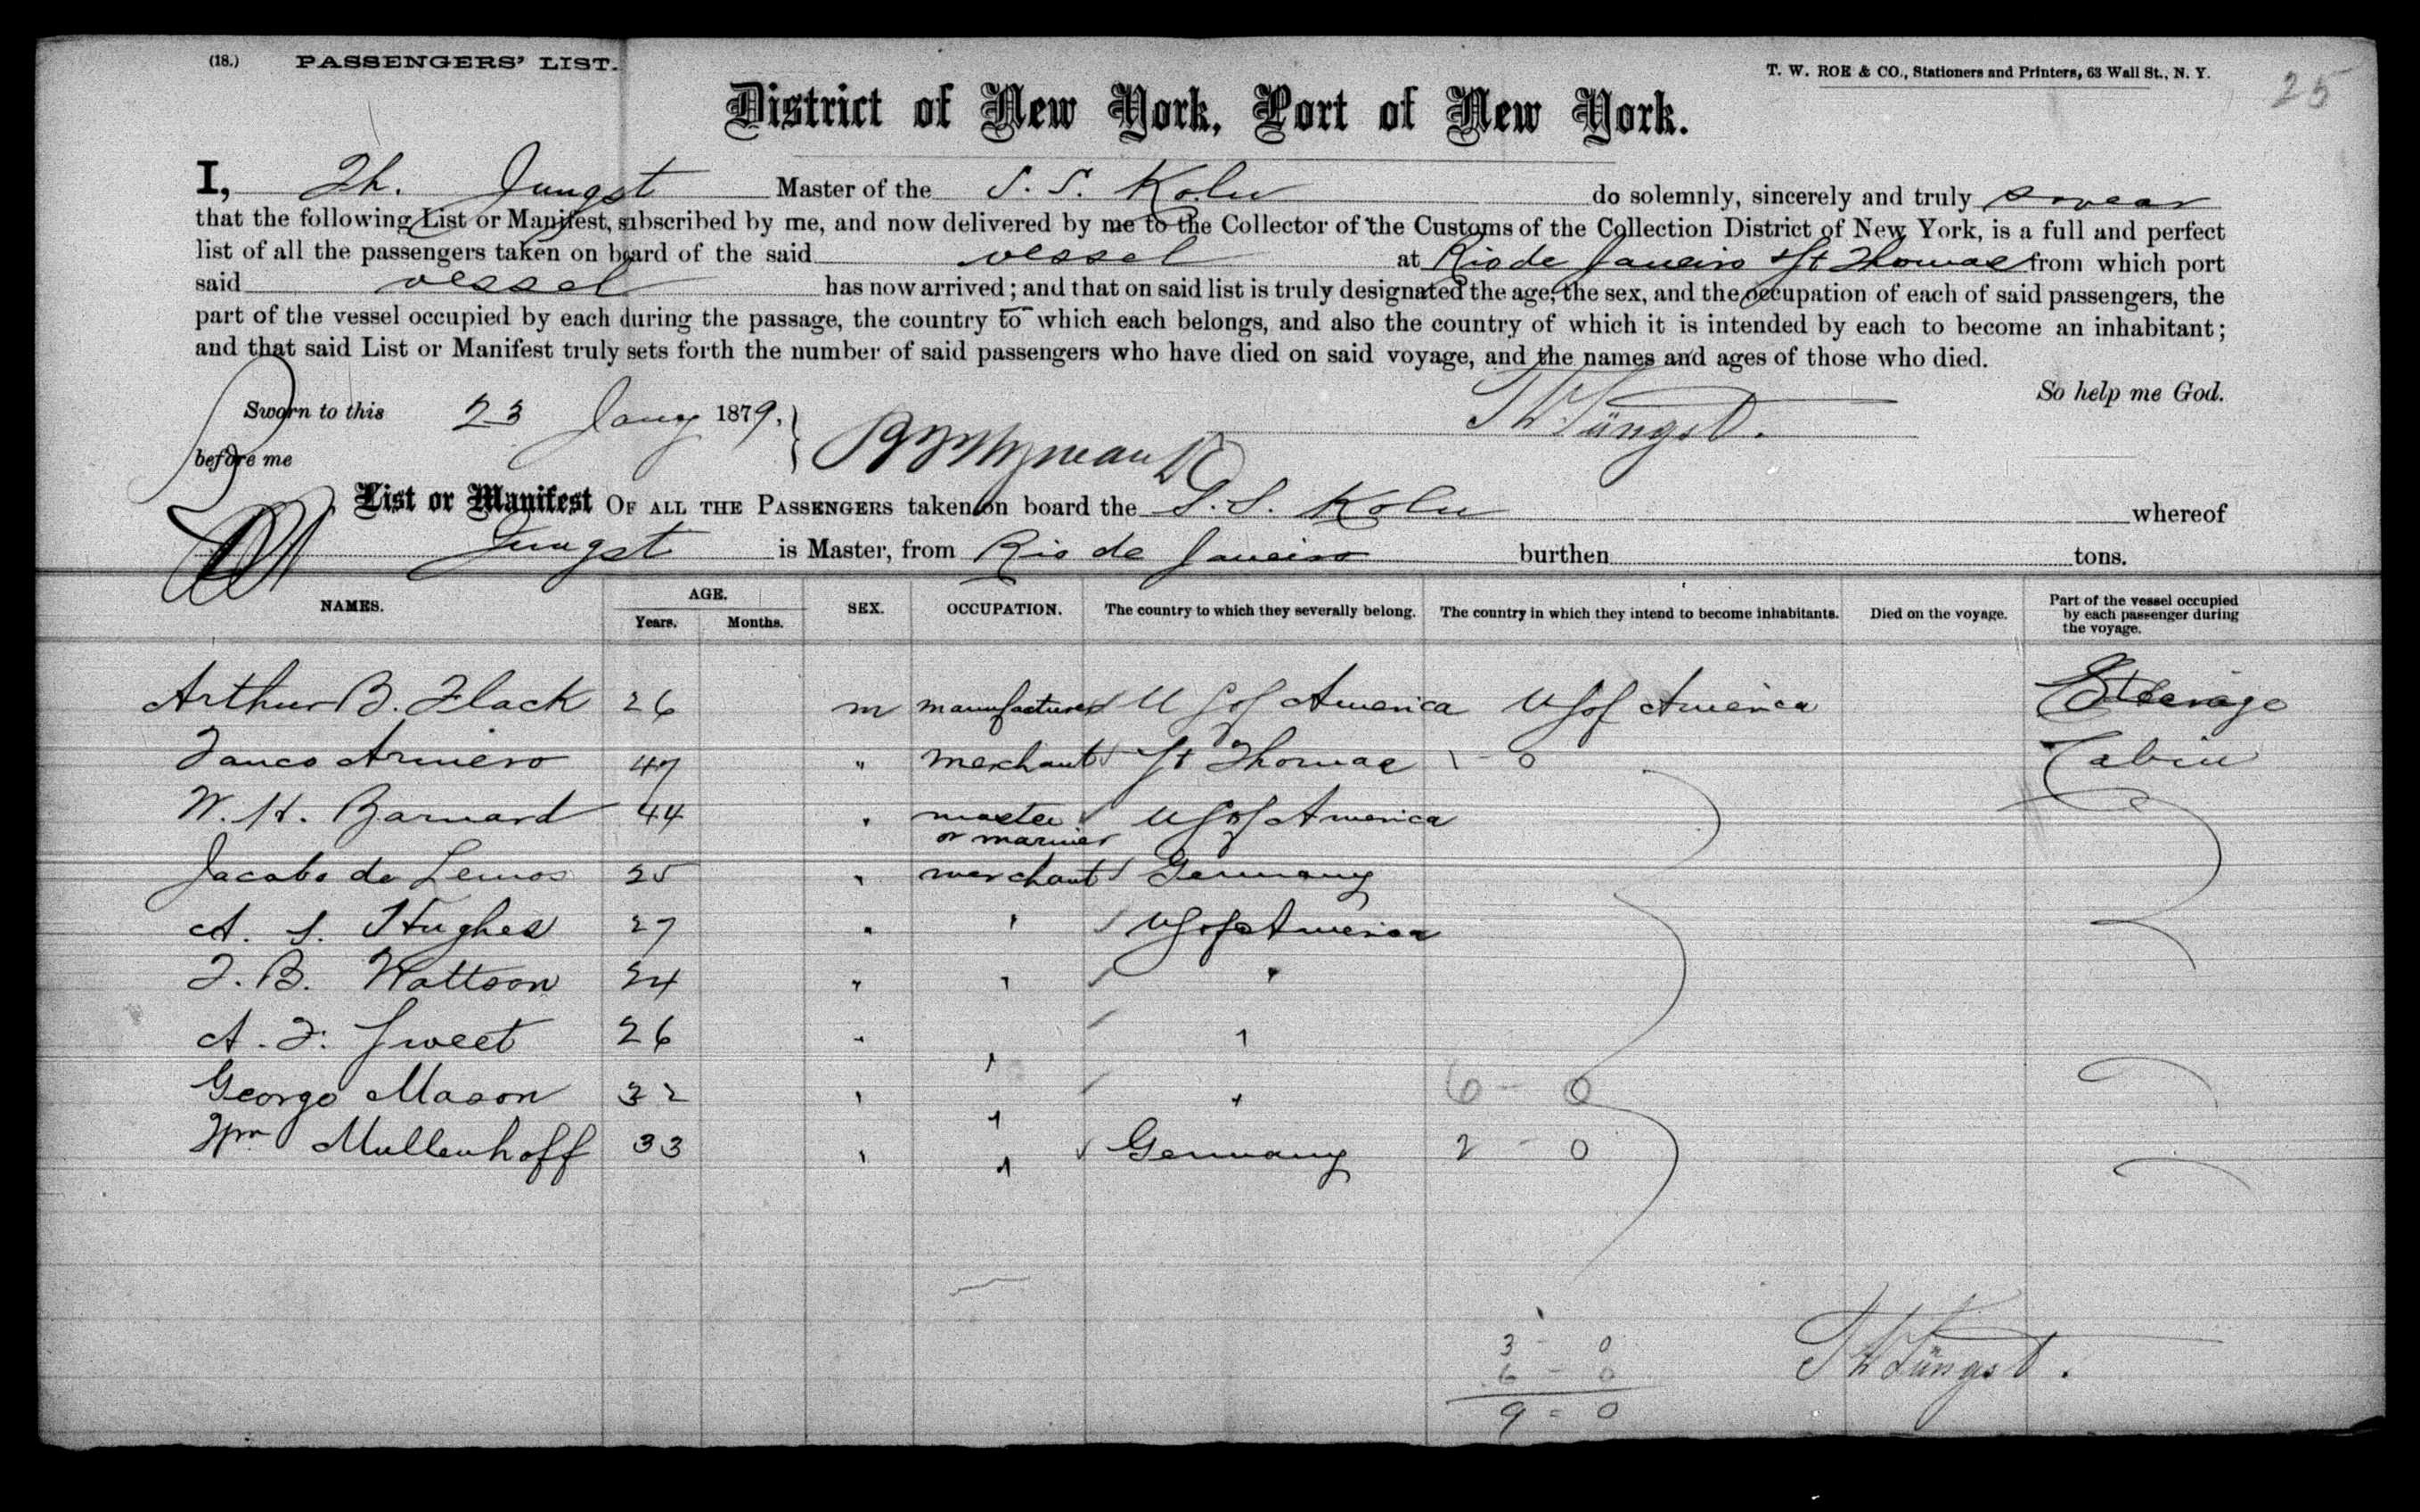 (18.) PASSENGERS' LIST.
T. W. ROE & CO., Stationers and Printers, 63 Wall St., N. Y.
25
District of New York, Port of New York.
I, Th. Jungst Master of the S. S. Koln do solemnly, sincerely and truly swear
that the following List or Manifest, subscribed by me, and now delivered by me to the Collector of the Customs of the Collection District of New York, is a full and perfect
list of all the passengers taken on board of the said vessel at Rio de Janeiro & St Thomas from which port
said vessel has now arrived; and that on said list is truly designated the age, the sex, and the occupation of each of said passengers, the
part of the vessel occupied by each during the passage, the country to which each belongs, and also the country of which it is intended by each to become an inhabitant;
and that said List or Manifest truly sets forth the number of said passengers who have died on said voyage, and the names and ages of those who died.
So help me God.
Sworn to this 23 Jany 1879.
Th Jüngst.
before me
List or Manifest OF ALL THE PASSENGERS taken on board the S. S. Koln whereof
Jungst is Master, from Rio de Janeiro burthen tons.
NAMES. AGE. Years. Months. SEX. OCCUPATION. The country to which they severally belong. The country in which they intend to become inhabitants. Died on the voyage. Part of the vessel occupied by each passenger during the voyage.
Arthur B. Flack 26 m manufacturer U S of America U S of America Steerage
Armiero 47 " merchant St Thomas 1 - 0 Cabin
W. H. Barnard 44 " master U S of America
or mariner
Jacobo de Lemos 25 " merchant Germany
A. S. Hughes 27 " " U S of America
F. B. Wattson 24 " " "
A. F. Sweet 26 " " "
George Mason 32 " " " 6 - 0
Wm Mullenhoff 33 " " Germany 2 - 0
3 - 0
6 - 0
9 = 0
Th Jüngst.